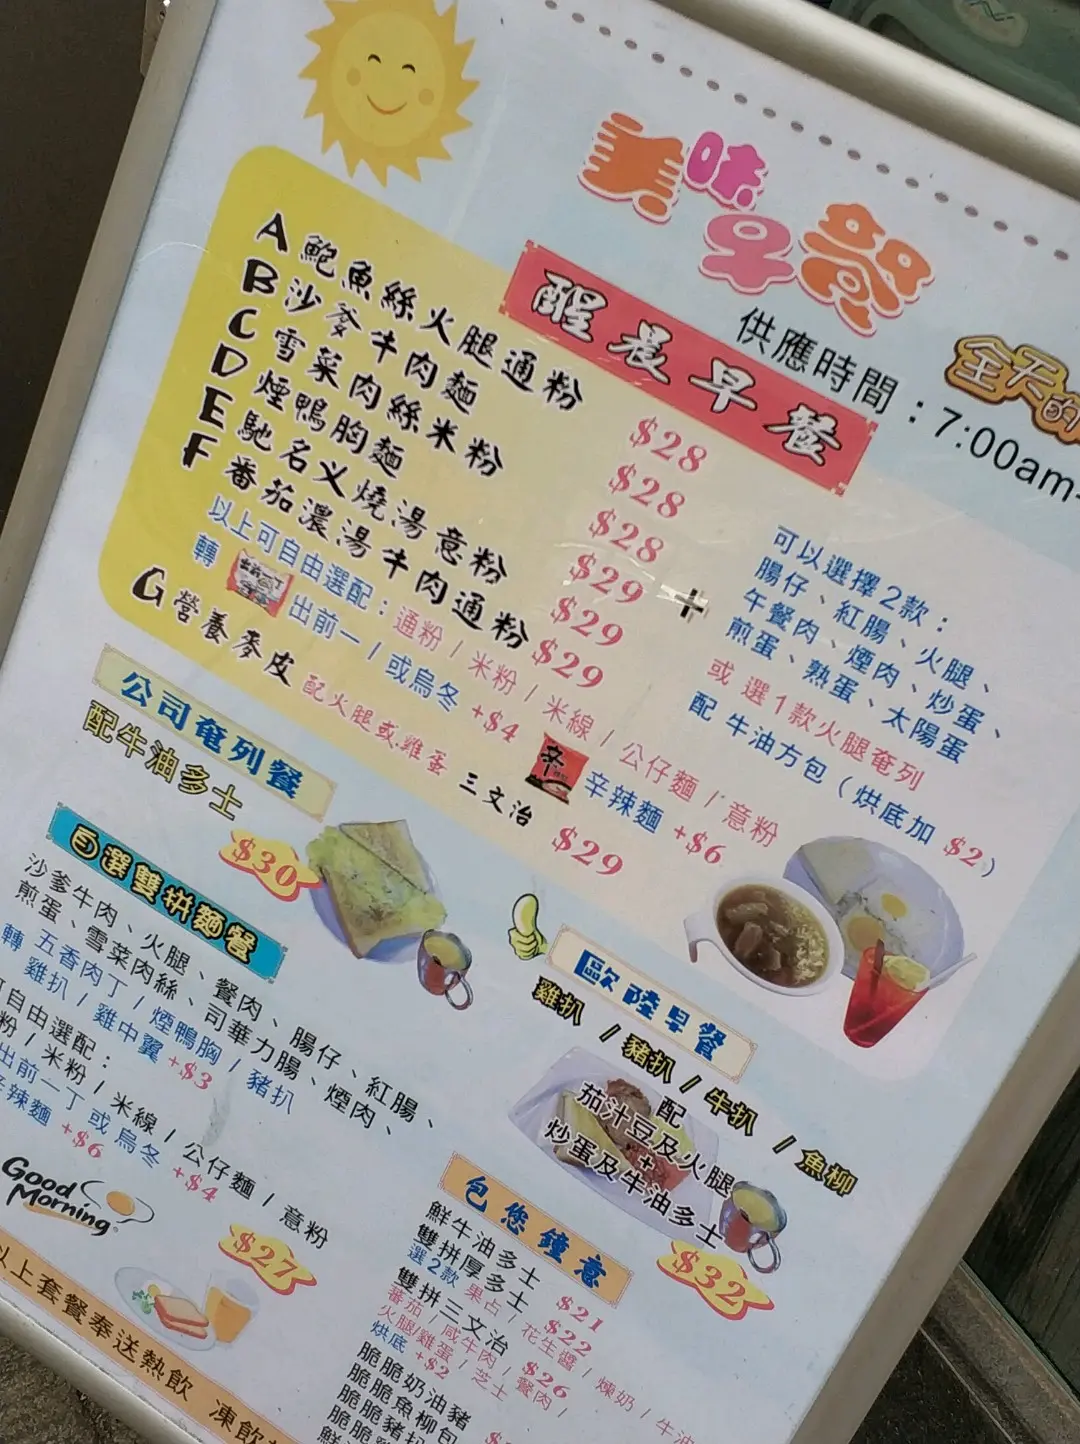 美味早餐
供應時間：7:00am-
全天的
醒晨早餐
A 鮑魚絲火腿通粉 $28
B 沙爹牛肉麵 $28
C 雪菜肉絲米粉 $28
D 煙鴨胸麵 $29
E 馳名义燒湯意粉 $29
F 番茄濃湯牛肉通粉 $29
以上可自由選配：通粉 / 米粉 / 米線 / 公仔麵 / 意粉
轉 出前一 / 或烏冬 +$4 辛辣麵 +$6
G 營養麥皮 配火腿或雞蛋 三文治 $29
+
可以選擇2款：
腸仔、紅腸、火腿、
午餐肉、煙肉、炒蛋、
煎蛋、熟蛋、太陽蛋
或 選1款火腿奄列
配 牛油方包（烘底加 $2）
公司奄列餐
配牛油多士
$30
自選雙拼麵餐
沙爹牛肉、火腿、餐肉、腸仔、紅腸、
煎蛋、雪菜肉絲、司華力腸、煙肉、
轉 五香肉丁 / 煙鴨胸 / 豬扒
雞扒 / 雞中翼 +$3
可自由選配：
粉 / 米粉 / 米線 / 公仔麵 / 意粉
出前一丁 或 烏冬 +$4
辣麵 +$6
Good
Morning
$27
歐陸早餐
雞扒 / 豬扒 / 牛扒 / 魚柳
配
茄汁豆及火腿
+
炒蛋及牛油多士
$32
包您鐘意
鮮牛油多士 $21
雙拼厚多士 $22
選2款 果占 / 花生醬 / 煉奶 / 牛油
雙拼三文治 $26
蕃茄 / 咸牛肉 / 餐肉 /
火腿/雞蛋 / 芝士
烘底 +$2
脆脆奶油豬
脆脆魚柳包
脆脆豬扒
脆脆
以上套餐奉送熱飲 凍飲